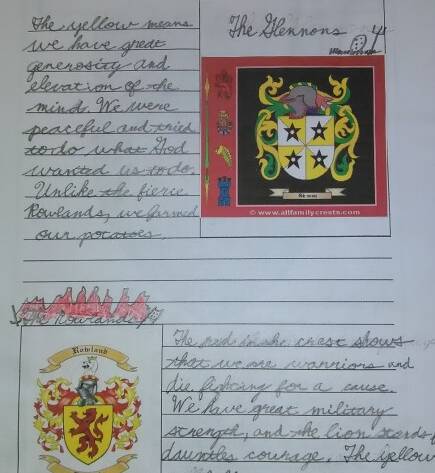 The yellow means
we have great
generosity and
elevation of the
mind. We were
peaceful and tried
to do what God
wanted us to do.
Unlike the fierie
Rowlands, we farmed
our potatoes.
The Glennons
© www.allfamilycrests.com
The Rowlands
Rowland
The red in the crest shows
that we are warriors and
die fighting for a cause.
We have great military
strength, and the lion stands
dauntles courage. The yellow